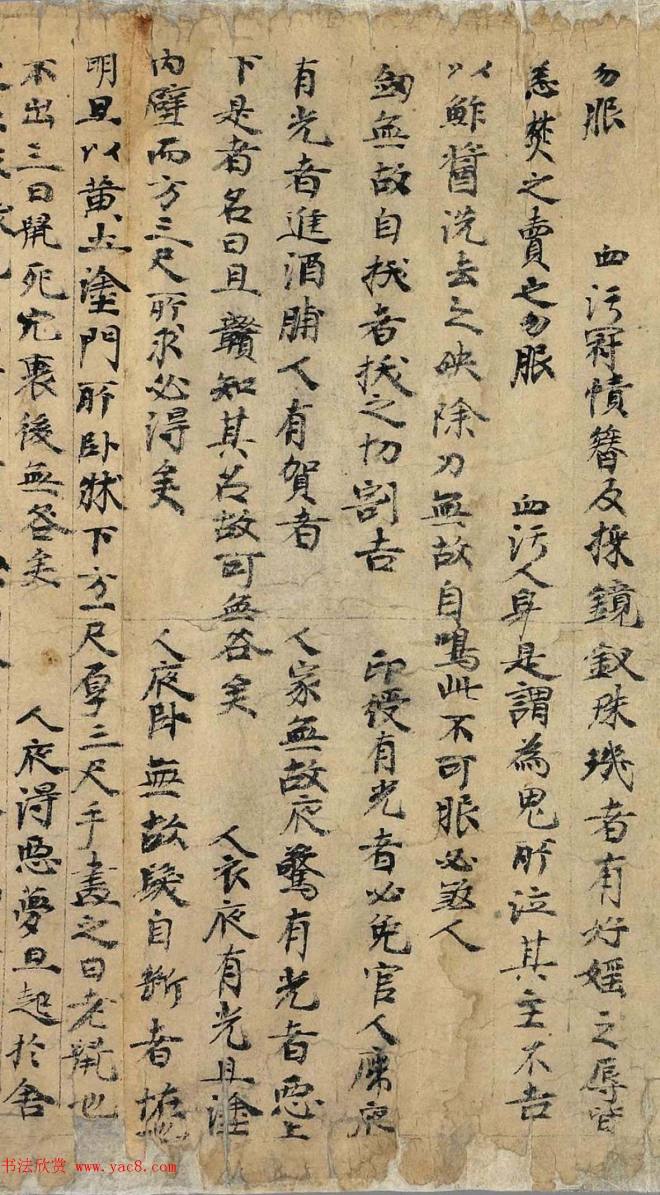 勿服　血污冠幘簪及採鏡釵珠璣者有好媱之辱皆
悉焚之賣之勿服　血污人身是謂為鬼所泣其主不吉
以鮓醬洗去之殃除刀無故自鳴此不可服必煞人
劒無故自拔者拔之切割吉　印綬有光者必免官人席夜
有光者進酒脯人有賀者　人家無故夜驚有光者惡上
下是者名曰且贛知其名故可無咎矣　人衣夜有光且塗
內壁而方三尺所求必得矣　人夜卧無故髮自斷者
明旦以黃土塗門所卧牀下方一尺厚三尺手畫之曰老鼠也
不出三日鼠死穴裏後無咎矣　人夜得惡夢旦起於舍
书法欣赏 www.yac8.com